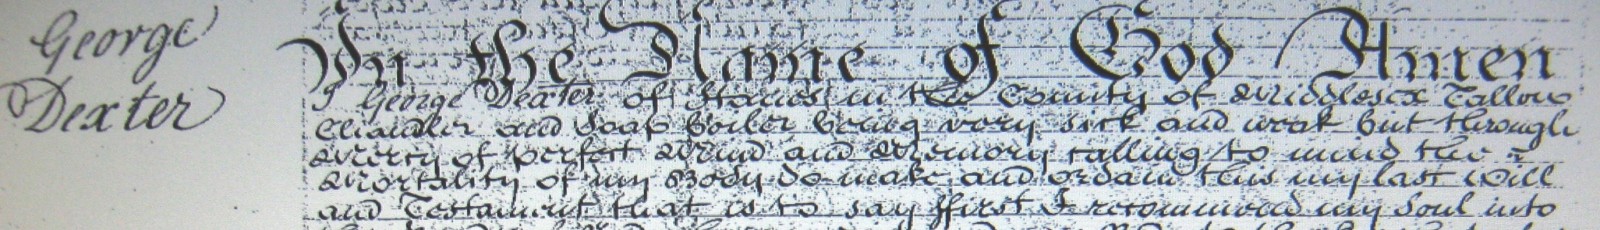 George
Dexter
In the Name of God Amen
I George Dexter of Stanes in the County of Middlesex Tallow
Chandler and Soap Boiler being very sick and weak but through
Mercy of perfect Mind and Memory calling to mind the
Mortality of my Body do make and ordain this my last Will
and Testament that is to say ffirst I recommend my Soul into